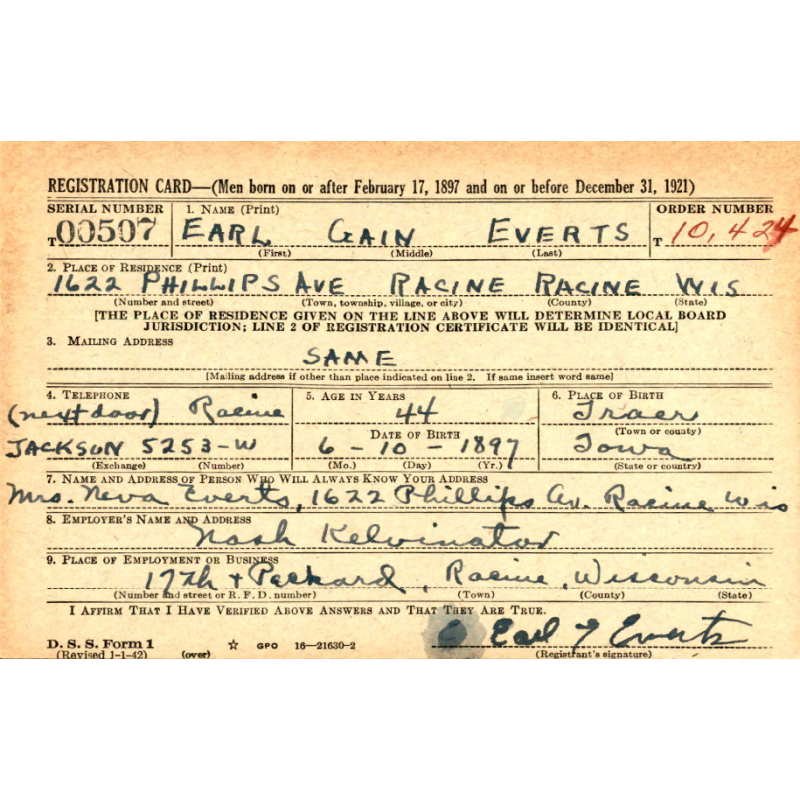 REGISTRATION CARD—(Men born on or after February 17, 1897 and on or before December 31, 1921)
SERIAL NUMBER 1. NAME (Print) ORDER NUMBER
T 00507 EARL GAIN EVERTS T 10,424
(First) (Middle) (Last)
2. PLACE OF RESIDENCE (Print)
1622 PHILLIPS AVE RACINE RACINE WIS
(Number and street) (Town, township, village, or city) (County) (State)
[THE PLACE OF RESIDENCE GIVEN ON THE LINE ABOVE WILL DETERMINE LOCAL BOARD
JURISDICTION; LINE 2 OF REGISTRATION CERTIFICATE WILL BE IDENTICAL]
3. MAILING ADDRESS
SAME
[Mailing address if other than place indicated on line 2. If same insert word same]
4. TELEPHONE 5. AGE IN YEARS 6. PLACE OF BIRTH
(next door) Racine 44 Traer
(Town or county)
DATE OF BIRTH
JACKSON 5253-W 6-10-1897 Iowa
(Exchange) (Number) (Mo.) (Day) (Yr.) (State or country)
7. NAME AND ADDRESS OF PERSON WHO WILL ALWAYS KNOW YOUR ADDRESS
Mrs. Neva Everts, 1622 Phillips Av. Racine Wis
8. EMPLOYER'S NAME AND ADDRESS
Nash Kelvinator
9. PLACE OF EMPLOYMENT OR BUSINESS
17th + Packard, Racine, Wisconsin
(Number and street or R. F. D. number) (Town) (County) (State)
I AFFIRM THAT I HAVE VERIFIED ABOVE ANSWERS AND THAT THEY ARE TRUE.
Earl G Everts
D. S. S. Form 1
(Revised 1-1-42) (over) ☆ GPO 16—21630-2 (Registrant's signature)